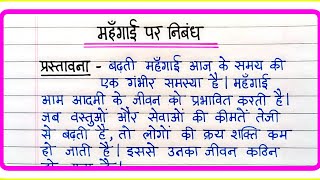 महँगाई पर निबंध
प्रस्तावना - बढ़ती महँगाई आज के समय की
एक गंभीर समस्या है। महँगाई
आम आदमी के जीवन को प्रभावित करती है।
जब वस्तुओं और सेवाओं की कीमतें तेजी
से बढ़ती है, तो लोगों की क्रय शक्ति कम
हो जाती है। इससे उनका जीवन कठिन